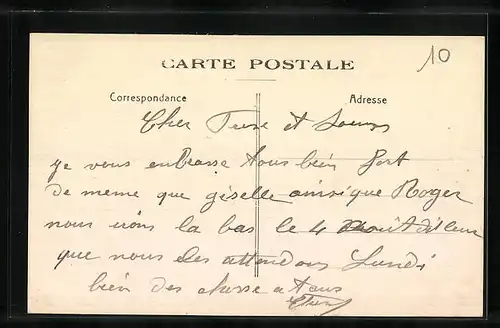 10
CARTE POSTALE
Correspondance
Adresse
Cher et
je vous enbrasse tous bien fort
de meme que giselle ainsique Roger
nous irons la bas le 4
que nous les attendons Lundi
bien des chose a tous